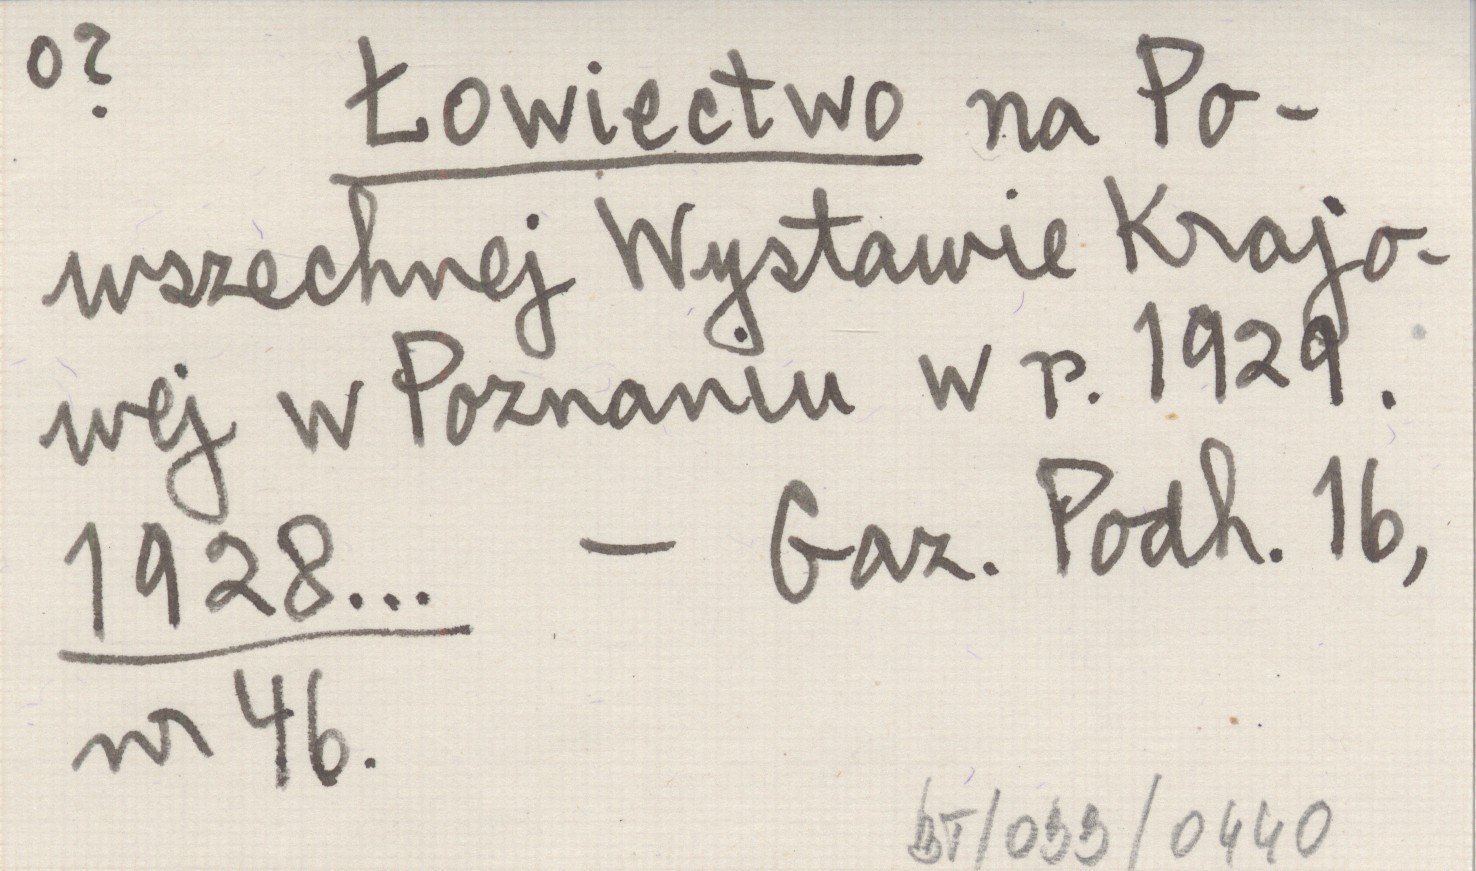 o?
Łowiectwo na Po-
wszechnej Wystawie Krajo-
wej w Poznaniu w r. 1929.
1928... — Gaz. Podh. 16,
nr 46.
BT/033/0440